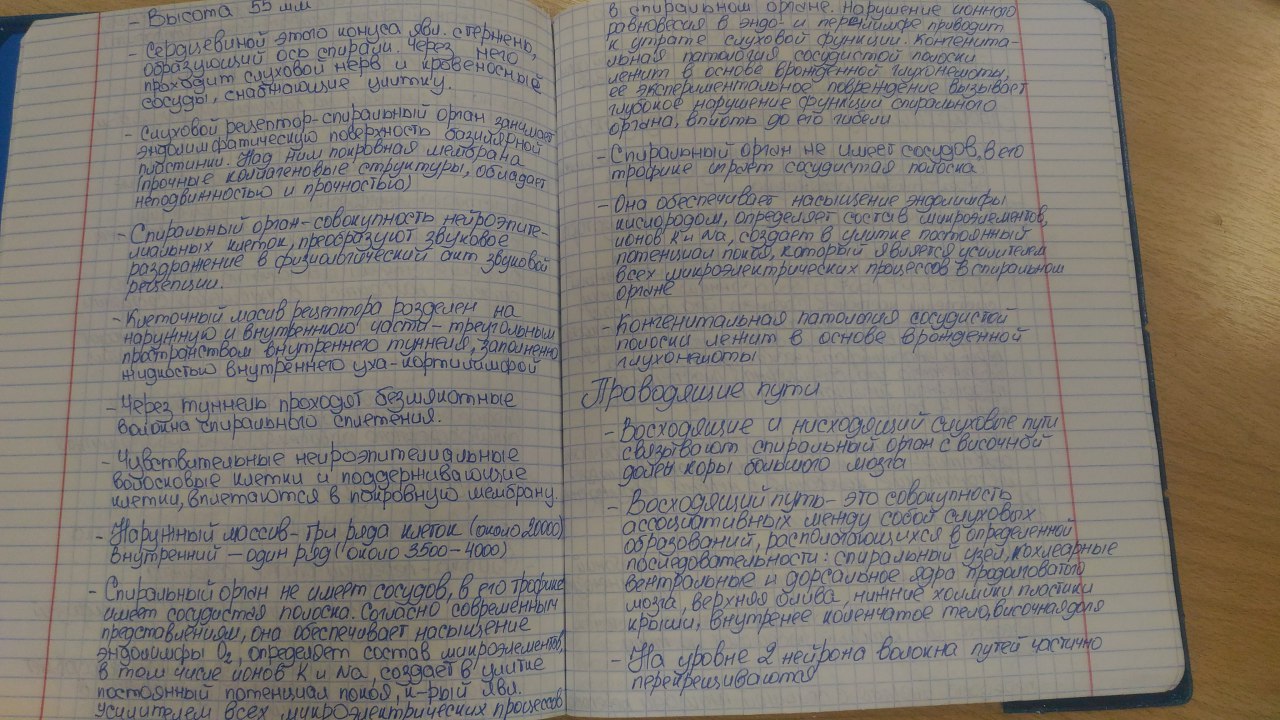 - Высота 55 мм
- Сердцевиной этого конуса явл. стержень,
образующий ось спирали. Через него
проходит слуховой нерв и кровеносные
сосуды, снабжающие улитку.
- Слуховой рецептор-спиральный орган занимает
эндолимфатическую поверхность базилярной
пластинки. Над ним покровная мембрана
(прочные коллагеновые структуры, обладает
неподвижностью и прочностью)
- Спиральный орган-совокупность нейроэпите-
лиальных клеток, преобразуют звуковое
раздражение в физиологический акт звуковой
рецепции.
- Клеточный масив рецептора разделен на
наружную и внутреннюю части - треугольным
пратранством внутреннего туннеля, заполненно
жидкостью внутреннего уха-кортилимфой
- Через туннель проходят безмякотные
волокна спирального сплетения.
- Чувствительные нейроэпителиальные
волосковые клетки и поддерживающие
клетки, вплетаются в покровную мембрану.
- Наружный массив- три ряда клеток (около 20000)
внутренний - один ряд (около 3500-4000)
- Спиральный орган не имеет сосудов, в его трофике
имеет сосудистая полоска. Согласно современныч
представлениям, она обеспечивает насыщение
эндолимфы O2, определяет состав микроэлементов,
в том числе ионов К и Na, создает в улитке
постоянный потенциал покоя, к-рый явл.
усилителем всех микроэлектрических процессов
в спиральном органе. Нарушение ионного
равновесия в эндо- и перилимфе приводит
к утрате слуховой функции. Конгенита-
льная патология сосудистой полоски
лежит в основе врожденной глухонемоты,
ее экспериментальное повреждение вызывает
глубокое нарушение функции спирального
органа, вплоть до его гибели
- Спиральный орган не имеет сосудов, в его
трофике играет сосудистая полоска
- Она обеспечивает насыщение эндолимфы
кислородом, определяет состав микроэлементов,
ионов К и Na, создает в улитке постоянный
потенциал покоя, который является усилителем
всех микроэлектрических процессов в спиральном
органе
- Конгенитальная патология сосудистой
полоски лежит в основе врожденной
глухонемоты
Проводящие пути
- Восходящие и нисходящий слуховые пути
связывают спиральный орган с височной
долей коры большого мозга
- Восходящий путь- это совокупность
ассоциативных между собой слуховых
образований, располагающихся в определенной
последовательности: спиральный узел, кохлеарные
вентральные и дорсальное ядра продолговатого
мозга, верхняя олива, нижние холмики пластики
крыши, внутренее коленчатое тело, височная доля
- На уровне 2 нейрона волокна путей частично
перекрещиваются